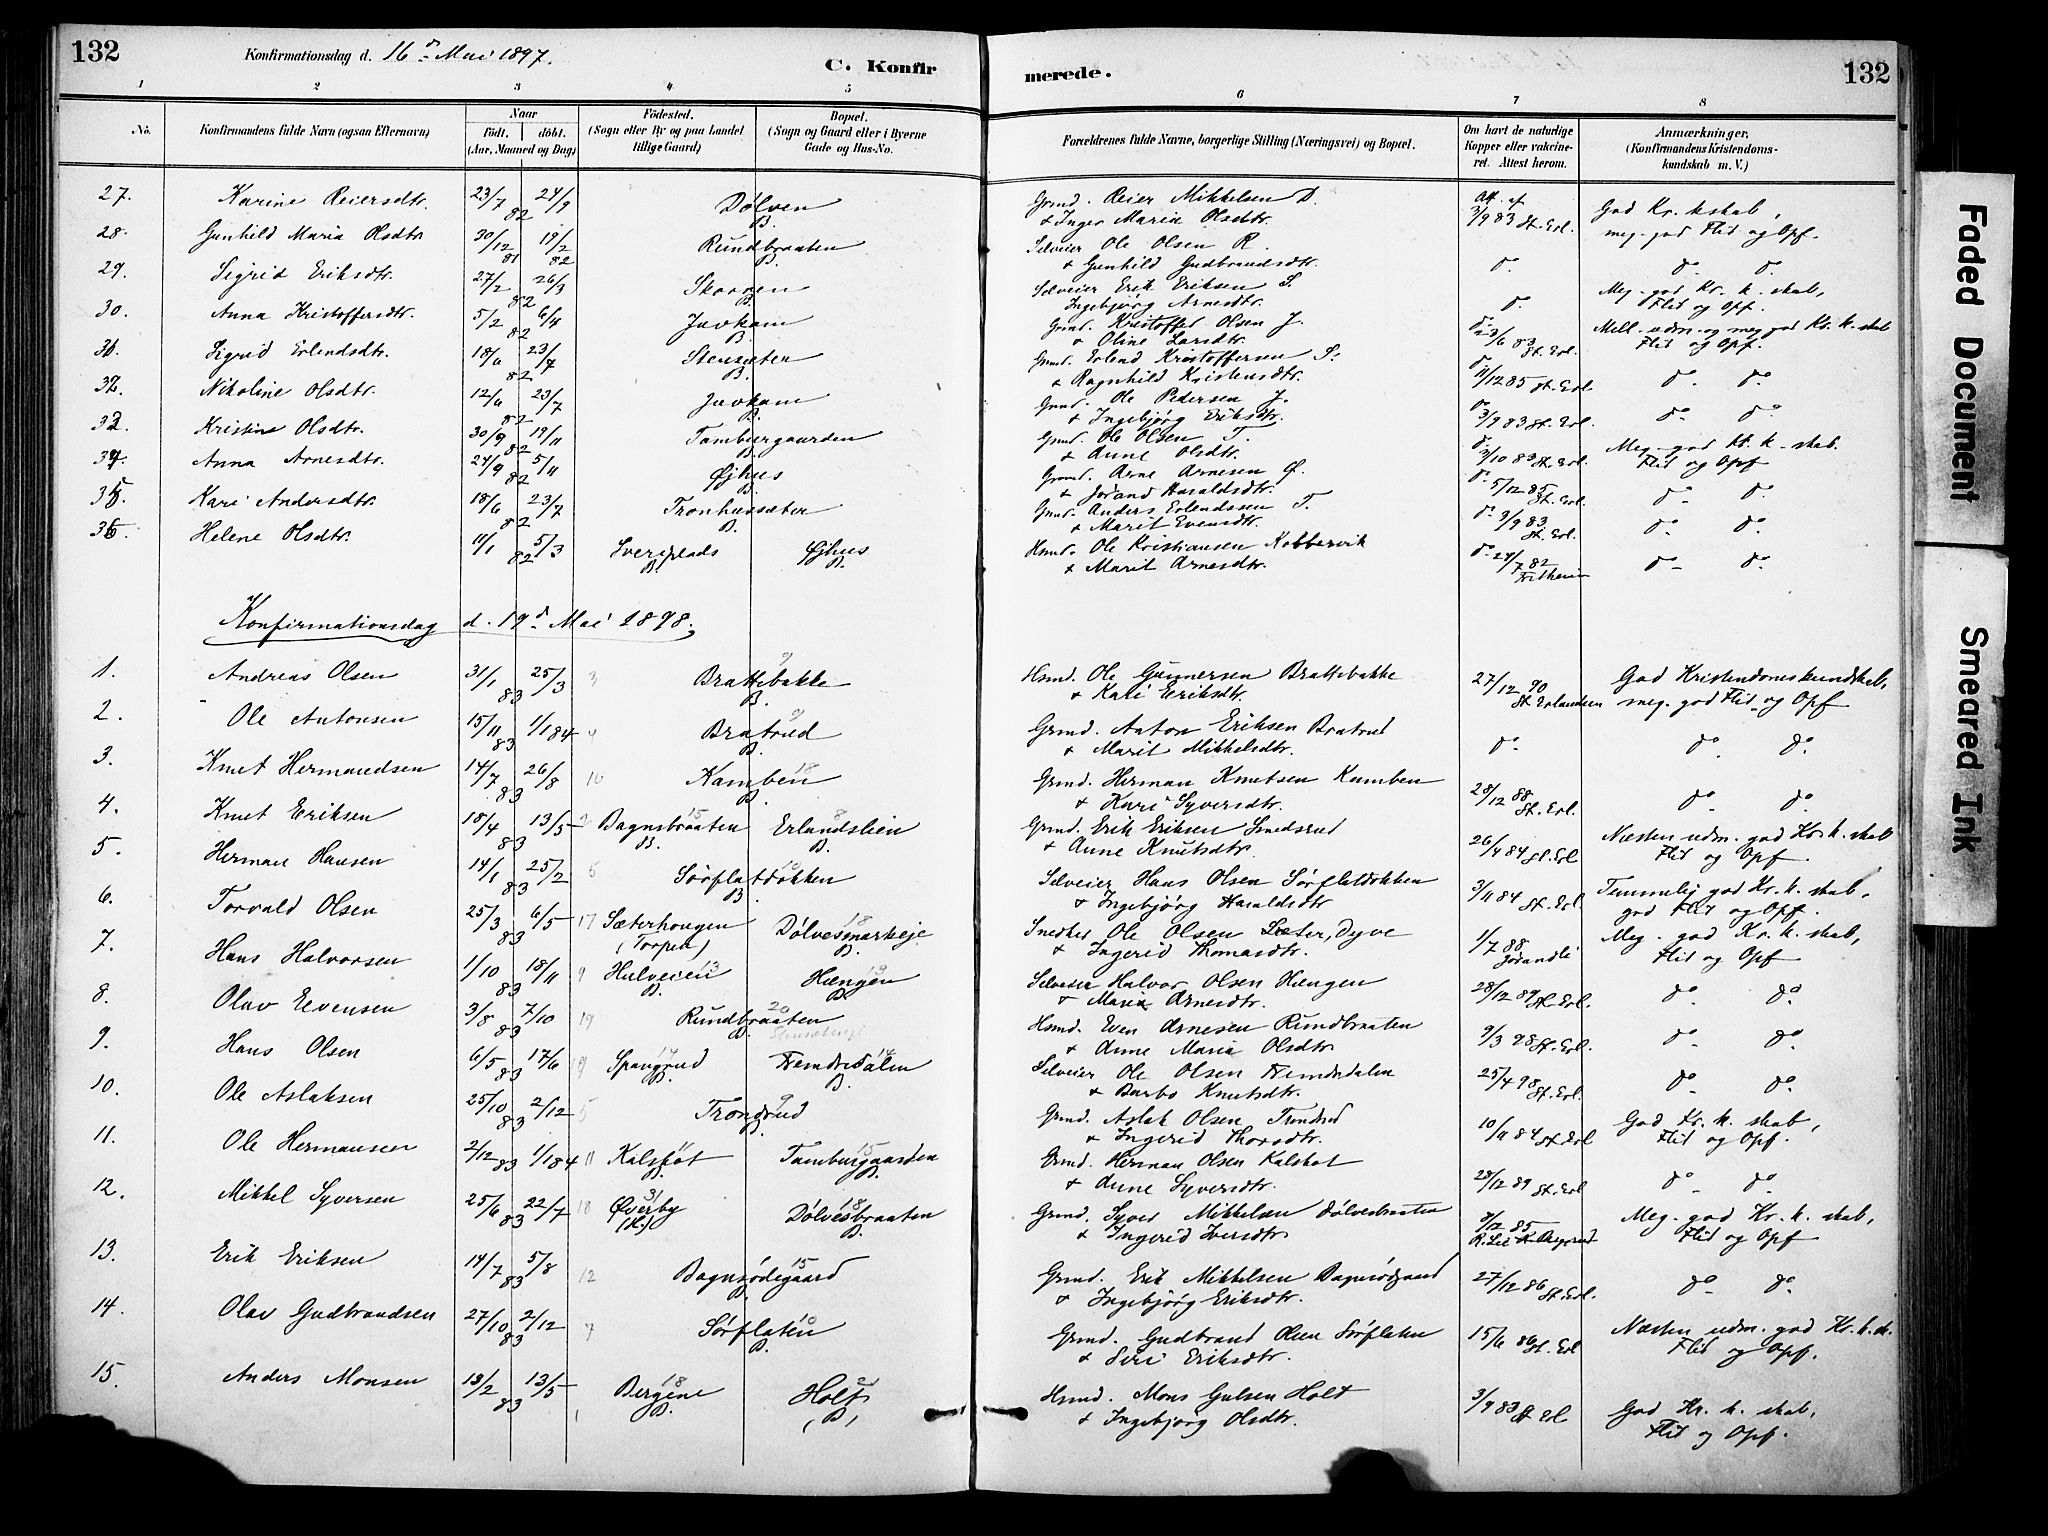 132
Konfirmationsdag d. 16de Mai 1897.
C. Konfirmerede.
132
1 2 3 4 5 6 7 8
No.
Konfirmandens fulde Navn (ogsaa Efternavn)
Naar
födt. döbt.
(Aar, Maaned og Dag)
Födested.
(Sogn eller By og paa Landet
tillige Gaard)
Bopæl.
(Sogn og Gaard eller i Byerne
Gade og Hus-No.
Forældrenes fulde Navne, borgerlige Stilling (Næringsvei) og Bopæl.
Om havt de naturlige
Kopper eller vakcine-
ret. Attest herom.
Anmærkninger.
(Konfirmandens Kristendoms-
kundskab m. V.)
27. Karine Reiersdtr. 23/7 82 24/9 Dølven B. Grmd. Reier Mikkelsen D. + Inger Maria Olsdtr. Att. af 3/9 83 St. Erl. God Kr. kskab, meg. god Flid og Opf.
28. Gunhild Maria Olsdtr. 30/12 81 19/2 82 Rundbraaten B. Selveier Ole Olsen R. + Gunhild Gudbrandsdtr. do. do. do.
29. Sigrid Eriksdtr. 27/2 82 26/3 Skaren B. Selveier Erik Eriksen S. Ingebjørg Arnesdtr. do. Meg. god Kr. k. skab, Flid og Opf.
30. Anna Kristoffersdtr. 5/2 82 6/4 Javkam B. Grmd. Kristoffer Olsen J. + Oline Larsdtr. do 23/6 83 St. Erl. Mell. udm. og meg god Kr. k. skab Flid og Opf.
31. Sigrid Erlendsdtr. 18/6 82 23/7 Stensæter B. Grmd. Erlend Kristoffersen S. + Ragnhild Kristensdtr. do 11/12 85 St. Erl. do. do.
32. Nikoline Olsdtr. 12/6 82 23/7 Javkam B. Grmd. Ole Pedersen J. + Ingebjørg Eriksdtr. do 3/9 83 St. Erl. do. do.
33. Kristine Olsdtr. 30/9 82 19/11 Tamburgaarden B. Grmd. Ole Olsen T. + Anne Olsdtr. do. 3/10 83 St. Erl. Meg. god Kr. k. skab. Flid og Opf
34. Anna Arnesdtr. 24/9 82 5/11 Øjhus B. Grmd. Arne Arnesen Ø. + Jørand Haraldsdtr. do. 5/12 85 St. Erl. do. do.
35. Kari Andersdtr. 18/6 82 23/7 Tronhussæter B. Grmd. Anders Erlendssen T. + Marit Evensdtr. do. 3/9 83 St. Erl. do. do.
36. Helene Olsdtr. 11/1 82 5/3 Sveeplads B. Øjhus B. Hsmd. Ole Kristiansen Kobbervik + Marit Arnesdtr. do. 24/7 82 do. do.
Konfirmationsdag d. 19de Mai 1898.
1. Andreas Olsen 31/1 83 25/3 3 Brattebakke B. Hsmd. Ole Gunnersen Brattebakke + Kari Eriksdtr. 27/12 90 St. Erlandsen God Kristendomskundskab, meg. god Flid og Opf
2. Ole Antonsen 15/11 83 1/1 84 4 Bratrud B. Grmd. Anton Eriksen Bratrud + Marit Mikkelsdtr. do. do. do.
3. Knut Hermandsen 14/7 83 26/8 10 Kamben B. Grmd. Herman Knutsen Kamben + Kari Syversdtr. 28/12 88 St. Erl. do. do.
4. Knut Eriksen 18/4 83 13/5 2 Bagnsbraaten B. Erlandslien B. Grmd. Erik Eriksen Smedsrud + Anne Knutsdtr. 26/4 84 St. Erl. Næsten udm. god Kr. k. skab Flid og Opf.
5. Herman Hansen 14/1 83 25/2 6 Sørflatdokken B. Selveier Hans Olsen Sørflatdokken + Ingebjørg Haraldsdtr 3/11 84 St. Erl. Temmelig god Kr. k. skab, god Flid og Opf.
6. Torvald Olsen 25/3 83 6/5 17 Sæterhougen (Torpen) Dølvesmarkeje B. Snedker Ole Olsen Sæter, Dyve + Ingerid Thomasdtr. 1/7 88 Meg. god Kr. k. skab, Flid og Opf
7. Hans Halvorsen 1/10 83 18/11 9 Hulveien B. Hængen B. Selveier Halvor Olsen Hengen + Maria Arnesdtr. 28/12 89 St. Erl. do. do.
8. Olav Evensen 3/8 83 7/10 19 Rundbraaten B. Hsmd. Even Arnesen Rundbraaten + Anne Maria Olsdtr. 9/3 98 St. Erl. do. do.
9. Hans Olsen 6/5 83 17/6 19 Spangrud B. Fremdredalen B. Selveier Ole Olsen Fremdredalen + Barbo Knutsdtr. 25/4 98 St. Erl. do. do.
10. Ole Aslaksen 25/10 83 2/12 5 Trondrud B. Grmd. Aslak Olsen Trondrud + Ingerid Thorsdtr. 10/11 84 St. Erl God Kr. k. skab, Flid og Opf.
11. Ole Hermansen 2/12 83 1/1 84 11 Kalsköt B. Tamburgaarden B. Grmd. Herman Olsen Kalskot + Anne Syversdtr. 28/12 89 St. Erl do. do.
12. Mikkel Syversen 25/6 83 22/7 18 Øverby Dølvesbraaten B. Grmd. Syver Mikkelsen Dølvesbraaten + Ingerid Iversdtr. 7/12 85 Meg. god Kr. k. skab, Flid og Opf
13. Erik Eriksen 14/7 83 5/8 12 Bagnsødegaard B. Grmd. Erik Mikkelsen Bagnsødegaard + Ingebjørg Eriksdtr. 27/12 86 St. Erl. do. do.
14. Olav Gudbrandsen 27/10 83 2/12 7 Sørflaten B. Grmd. Gudbrand Olsen Sørflaten + Siri Eriksdtr. 15/6 86 St. Erl Næsten udm. god Kr. k. sk. Flid og Opf.
15. Anders Monsen 13/2 83 13/5 1 Bergene B. Holt (B) Hsmd. Mons Gulsen Holt + Ingebjørg Olsdtr. 3/9 83 St. Erl God Kr. k. skab, Flid og Opf.
Faded Document
Smeared Ink